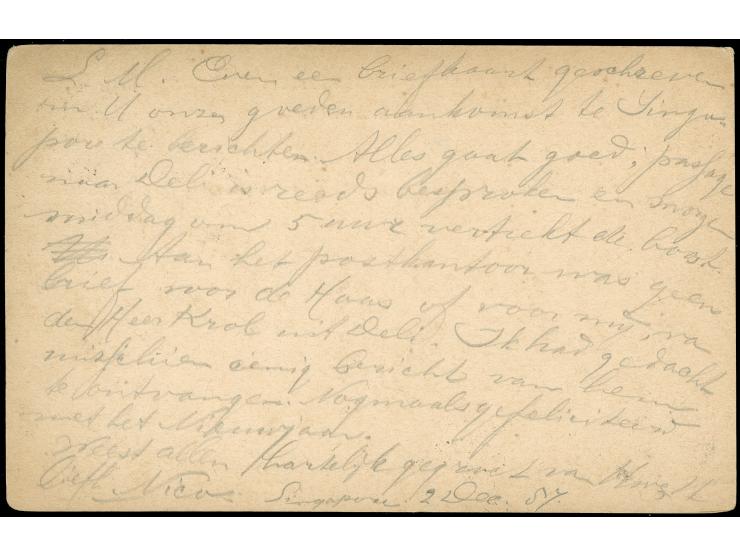 L M. Even een briefkaart geschreven
om U onze goeden aankomst te Singa-
pore te berichten. Alles gaat goed, passage
naar Deli is reeds besproken en morgen
middag om 5 uur vertrekt de boot.
Aan het postkantoor was geen
brief voor de Haas of voor mij, van
den Heer Krol uit Deli. Ik had gedacht
misschien eenig bericht van hem
te ontvangen. Nogmaals gefeliciteerd
met het Nieuwjaar.
Weest allen hartelijk gegroet van
Nico Singapore 2 Dec. 87.